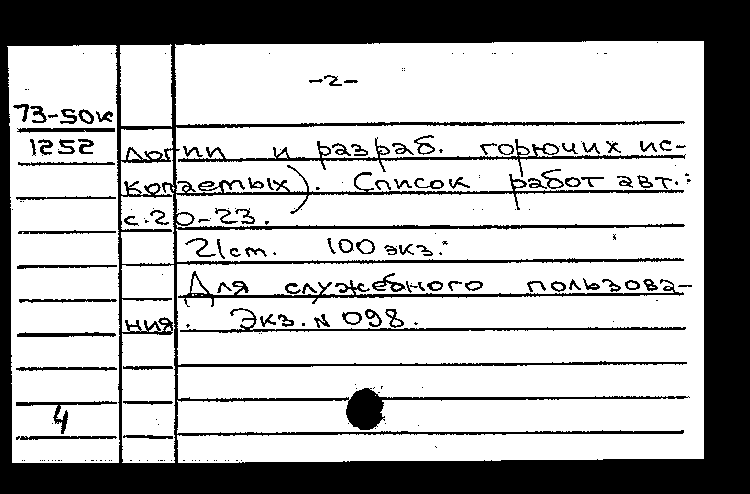 -2-
73-50к
1252
логии и разраб. горючих ис-
копаемых). Список работ авт.:
с.20-23.
21 ст. 100 экз.
Для служебного пользова-
ния. Экз. N 098.
4